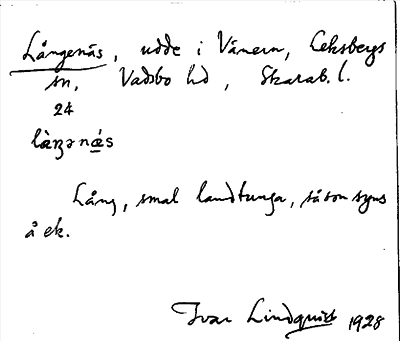 Långenäs, udde i Vänern, Leksbergs
sn, Vadsbo hd, Skarab. l.
24
làŋənǽs
Lång, smal landtunga, såsom syns
å ek.
Ivar Lindquist 1928